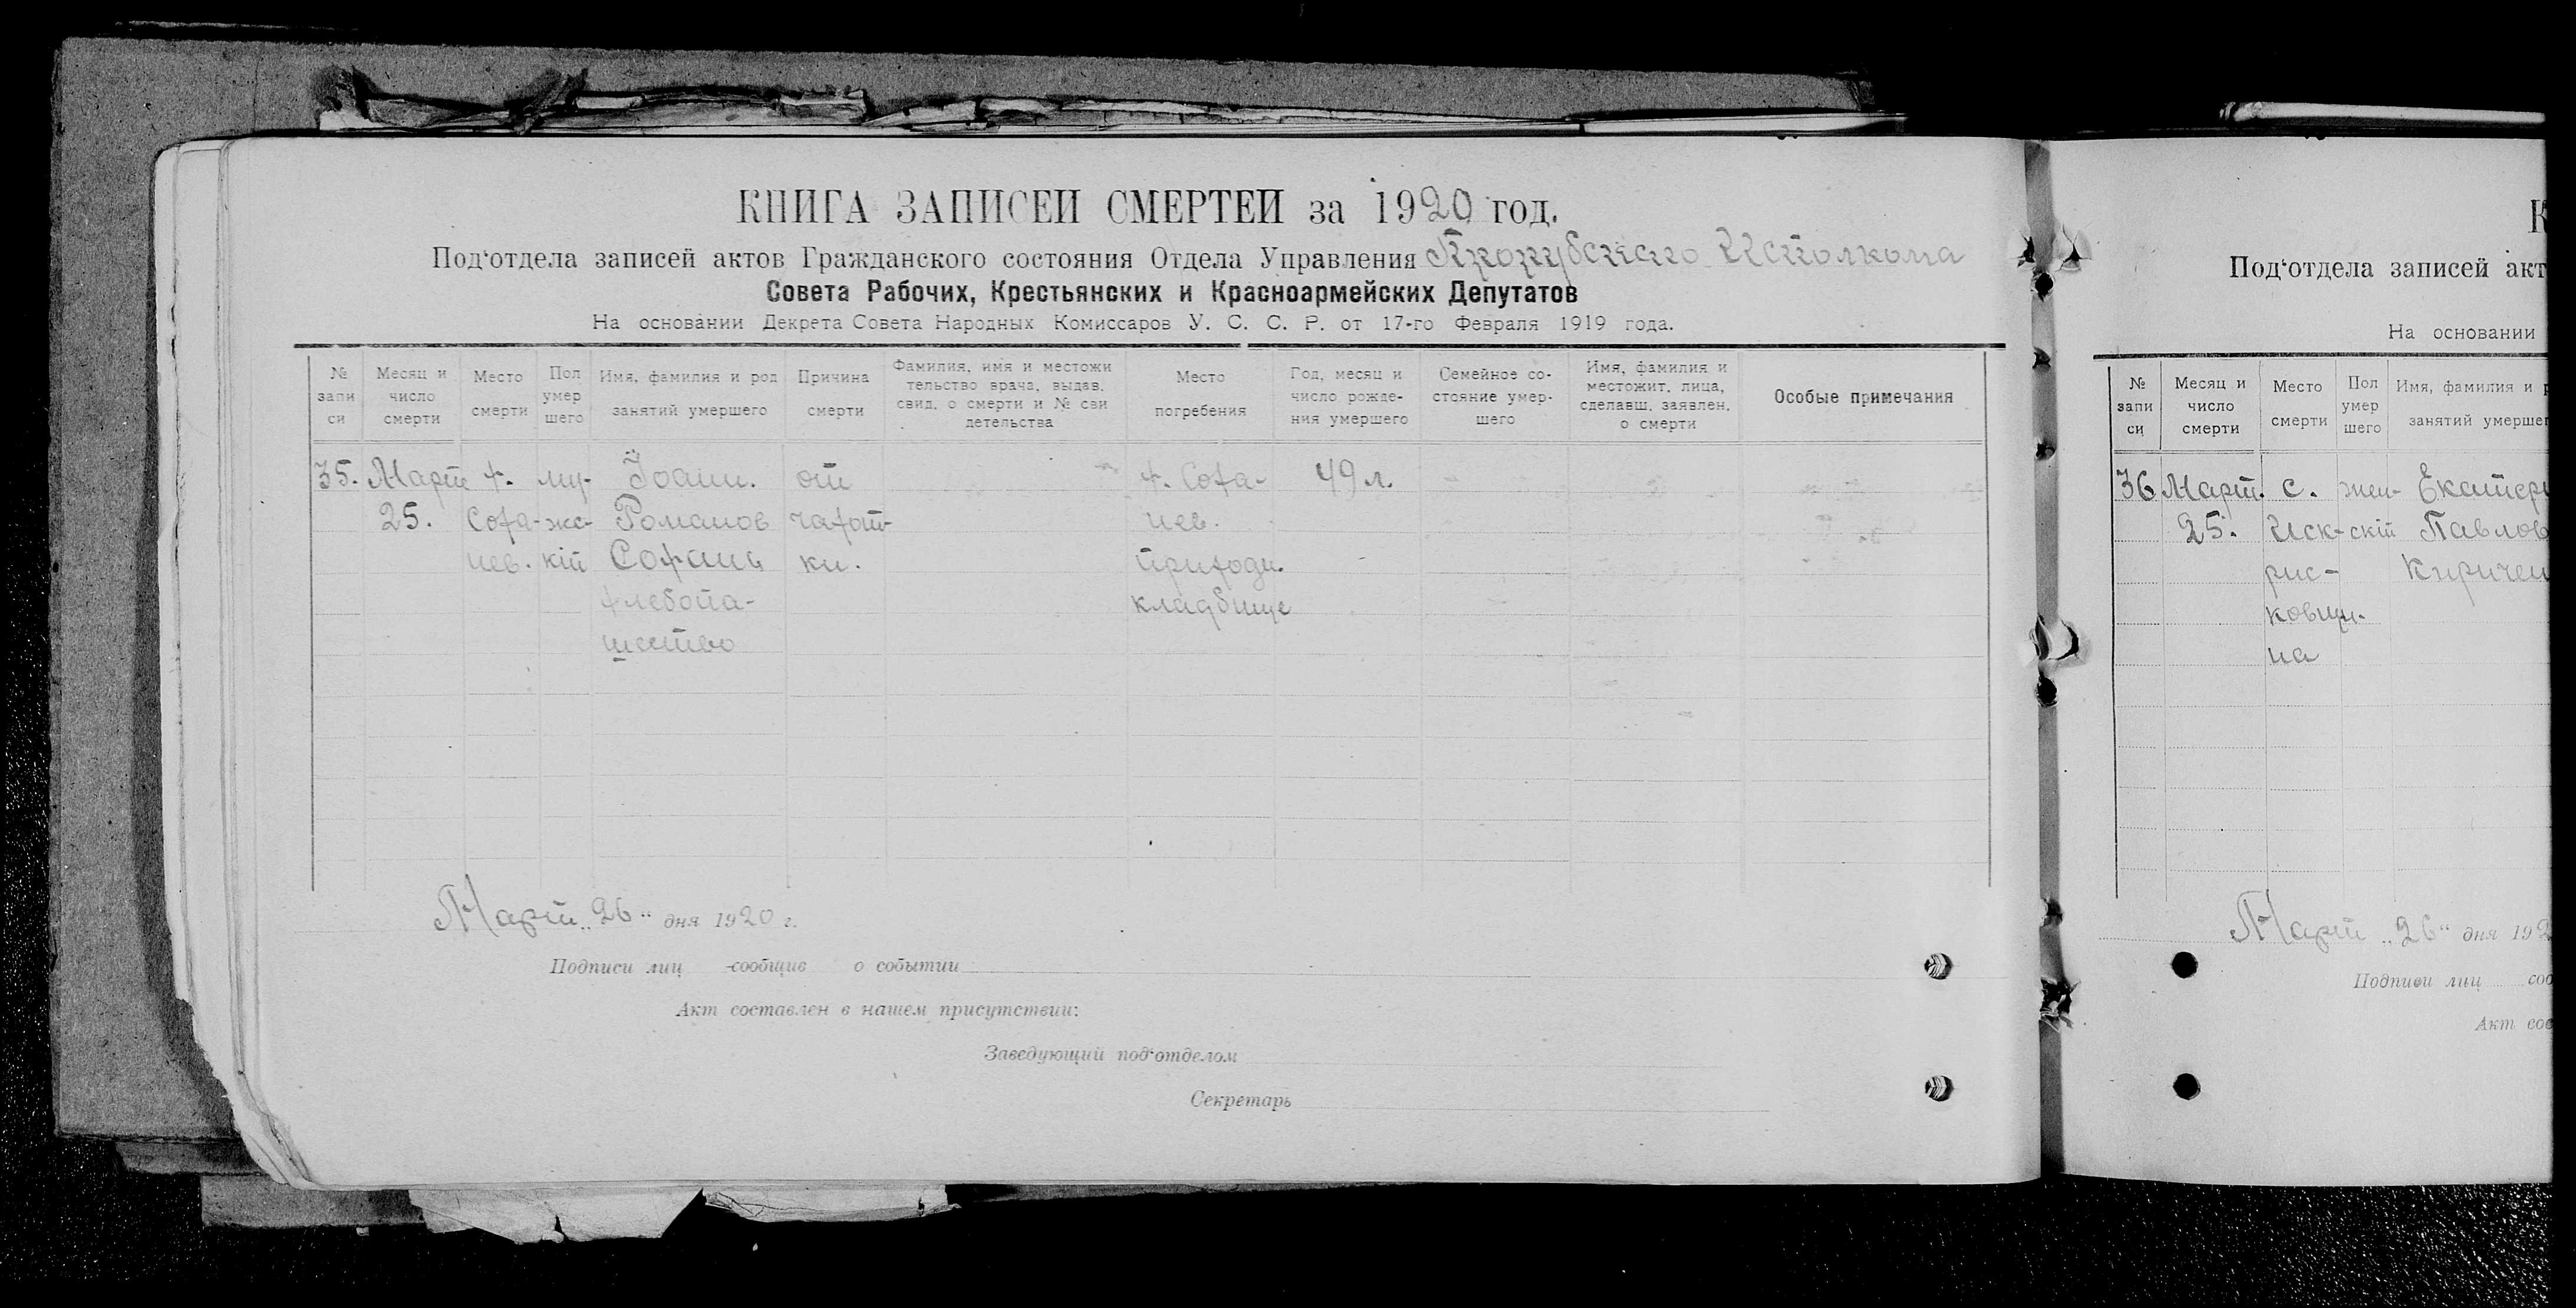 КНИГА ЗАПИСЕЙ СМЕРТЕЙ за 1920 год.
Под‘отдела записей актов Гражданского состояния Отдела Управления Исполкома
Совета Рабочих, Крестьянских и Красноармейских Депутатов
На основании Декрета Совета Народных Комиссаров У. С. С. Р. от 17-го Февраля 1919 года.
№ запи си
Месяц и число смерти
Место смерти
Пол умер шего
Имя, фамилия и род занятий умершего
Причина смерти
Фамилия, имя и местожи тельство врача, выдав. свид. о смерти и № сви детельства
Место погребения
Год, месяц и число рожде- ния умершего
Семейное со- стояние умер- шего
Имя, фамилия и местожит. лица, сделавш. заявлен. о смерти
Особые примечания
35. Март х. му- Іоанн. от х. Соха- 49 л.
25. Соха- жс- Романов чахот- нев.
нев. кій Сохань ки. приходс.
хлебопа- кладбище
шество
Март „26“ дня 1920 г.
Подписи лиц сообщив о событии
Акт составлен в нашем присутствии:
Заведующий под‘отделом
Секретарь
К
Под‘отдела записей акт
На основании
№ запи си
Месяц и число смерти
Место смерти
Пол умер шего
Имя, фамилия и
занятий умершег
36 Март. с. жен- Екатер
25. Иск- скій Павлов
рис- Киричен
ковщи-
на
Март „26“ дня 192
Подписи лиц соо
Акт сос